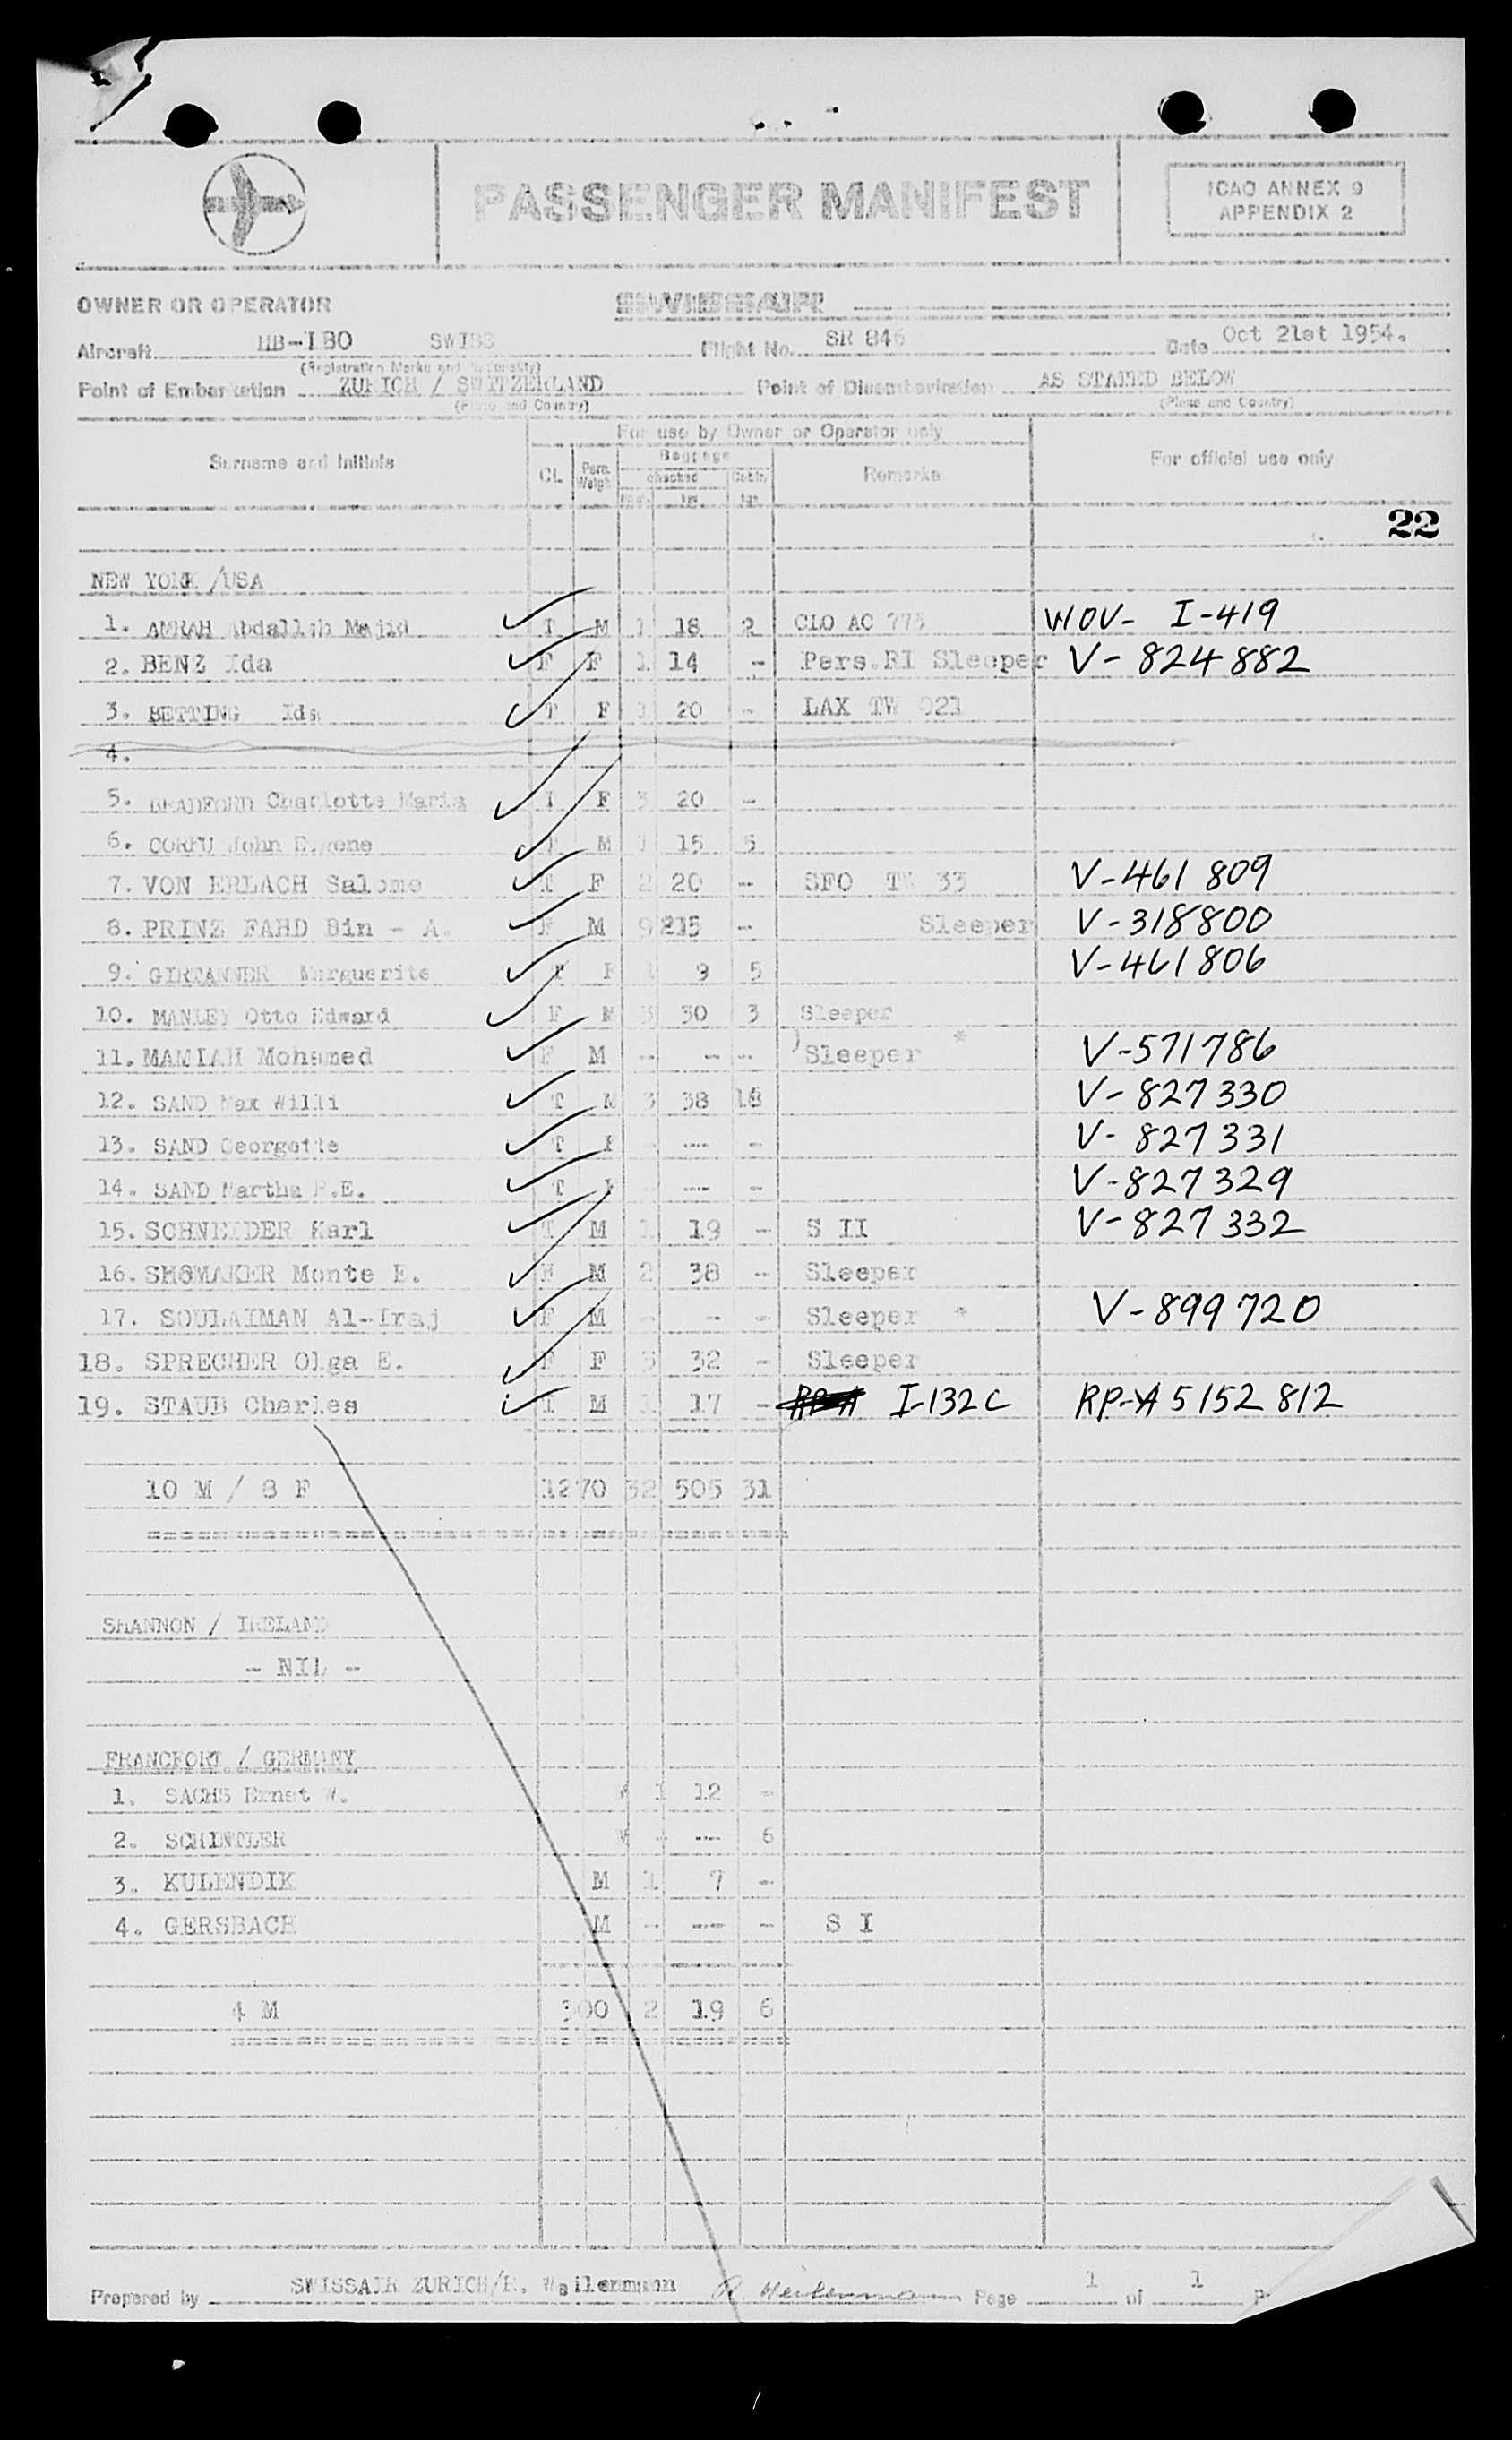 PASSENGER MANIFEST
ICAO ANNEX 9
APPENDIX 2
OWNER OR OPERATOR SWISSAIR
Aircraft HB-IBO SWISS Flight No. SR 846 Date Oct 21st 1954.
(Registration Marks and Nationality)
Point of Embarkation ZURICH / SWITZERLAND Point of Disembarkation AS STATED BELOW
(Place and Country) (Place and Country)
For use by Owner or Operator only
Surname and Initials CL. Pers. Weight Baggage checked kgs Cabin kgs Remarks For official use only
22
NEW YORK /USA
1. AMRAH Abdallah Majid T M 1 18 2 CLO AC 775 WOV- I-419
2. BENZ Ida F F 1 14 - Pers.RI Sleeper V-824882
3. BETTING Ida T F 1 20 - LAX TW 021
4.
5. BRADFORD Charlotte Maria T F 3 20 -
6. CORFU John Eugene T M 1 15 5
7. VON ERLACH Salome T F 2 20 -- SFO TW 33 V-461 809
8. PRINZ FAHD Bin - A. F M 9 215 - Sleeper V-318800
9. GIRTANNER Marguerite T F 1 9 5 V-461806
10. MANLEY Otto Edward F M 3 30 3 Sleeper
11. MAMIAH Mohamed F M -- -- -- )Sleeper * V-571786
12. SAND Max Willi T M 3 38 18 V-827330
13. SAND Georgette T F - --- - V-827331
14. SAND Martha F.E. T F - --- - V-827329
15. SCHNEIDER Karl T M 1 19 - S II V-827332
16. SHOMAKER Monte E. F M 2 38 - Sleeper
17. SOULAIMAN Al-Iraj F M - -- - Sleeper * V-899720
18. SPRECHER Olga E. F F 3 32 - Sleeper
19. STAUB Charles T M 1 17 - I-132C RP-A5152812
10 M / 8 F 1270 32 505 31
SHANNON / IRELAND
- NIL -
FRANCFORT / GERMANY
1. SACHS Ernst W. M 1 12 -
2. SCHINTLER M - --- 6
3. KULENDIK M 1 7 -
4. GERSBACH M -- --- - S I
4 M 300 2 19 6
Prepared by SWISSAIR ZURICH/R. Weilenmann R Weilenmann Page 1 of 1